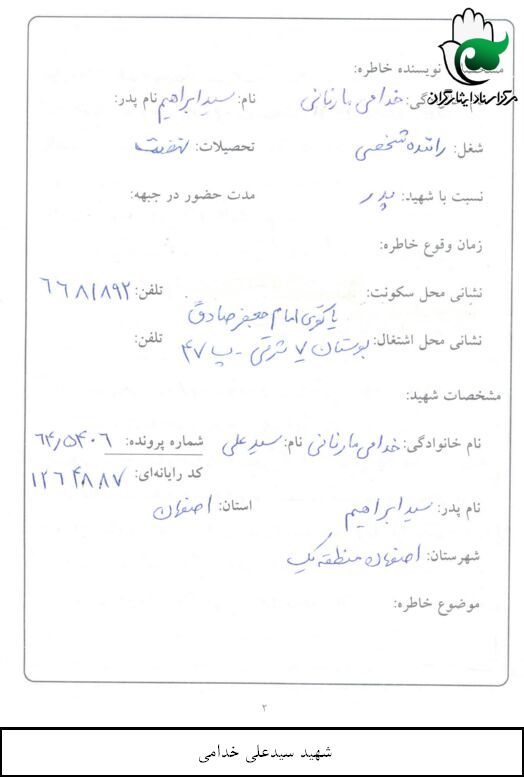 مرکز اسناد ایثارگران
مشخصات نویسنده خاطره:
نام خانوادگی: خدامی مارنانی نام: سید ابراهیم نام پدر:
شغل: راننده شخصی تحصیلات: نهضت
نسبت با شهید: پدر مدت حضور در جبهه:
زمان وقوع خاطره:
نشانی محل سکونت: تلفن: ۶۶۸۱۸۹۲
امام جعفر صادق
نشانی محل اشتغال: بوستان ۷ شرقی - پ ۴۷ تلفن:
مشخصات شهید:
نام خانوادگی: خدامی مارنانی نام: سید علی شماره پرونده: ۶۴٫۵۴۰۶
کد رایانه‌ای: ۱۲۶۴۸۸۷
نام پدر: سید ابراهیم استان: اصفهان
شهرستان: اصفهان منطقه یک
موضوع خاطره:
۲
شهید سیدعلی خدامی